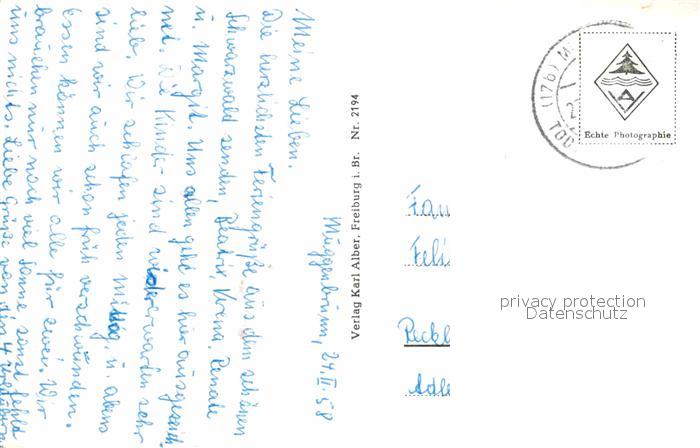 Muggenbrunn, 24. II. 58
Meine Lieben.
Die herzlichsten Feriengrüße aus dem schönen
Schwarzwald senden, Beatrix, Verena, Renate
u. Margit. Uns allen geht es hier ausgezeich-
net. Die Kinder sind wiedererwarten sehr
lieb. Wir schlafen jeden Mittag, u. abens
sind wir auch schon früh verschwunden.
Essen können wir alle für zwei. Wir
brauchen nur noch viel Sonne, sonst fehlt
uns nichts. Liebe Grüße von den 4
Verlag Karl Alber, Freiburg i. Br. Nr. 2194
(17b) M
TOD
Echte Photographie
Fam
Feli
Reckl
Adle
privacy protection
Datenschutz